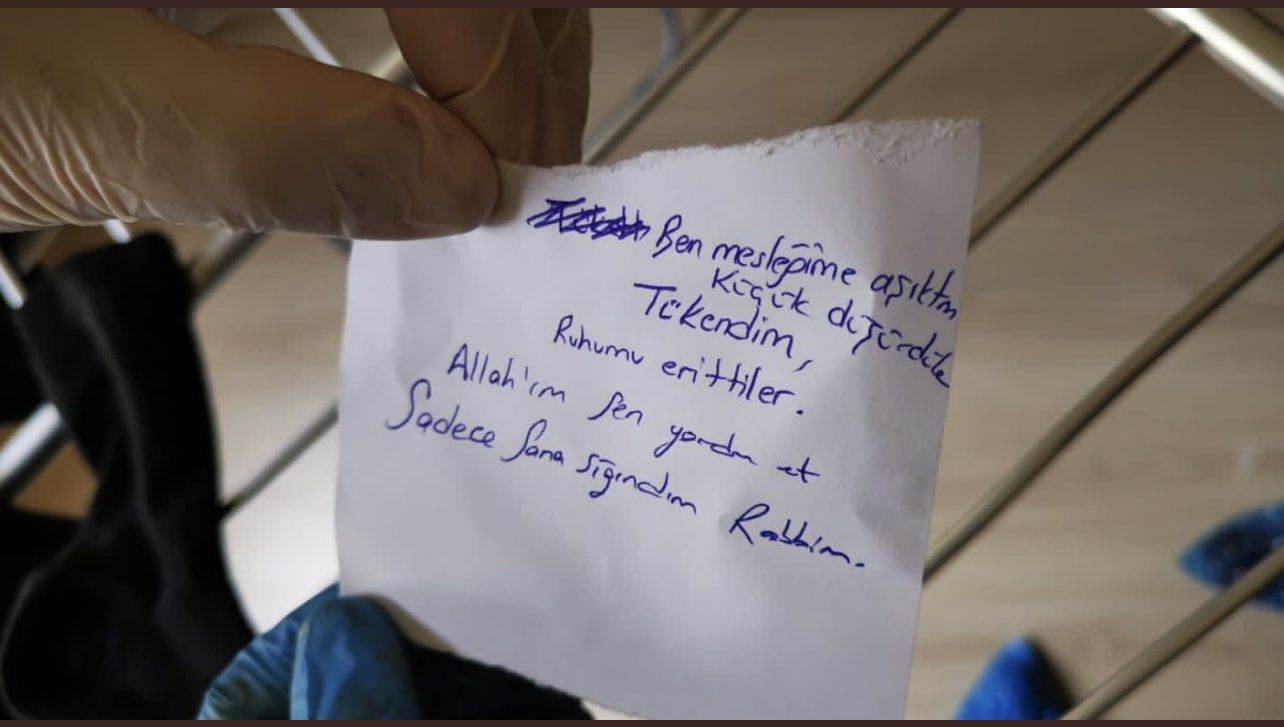 Ben mesleğime aşıktım
Küçük düşürdüle
Tükendim,
Ruhumu erittiler.
Allah'ım Sen yardım et
Sadece Sana sığındım Rabbim.